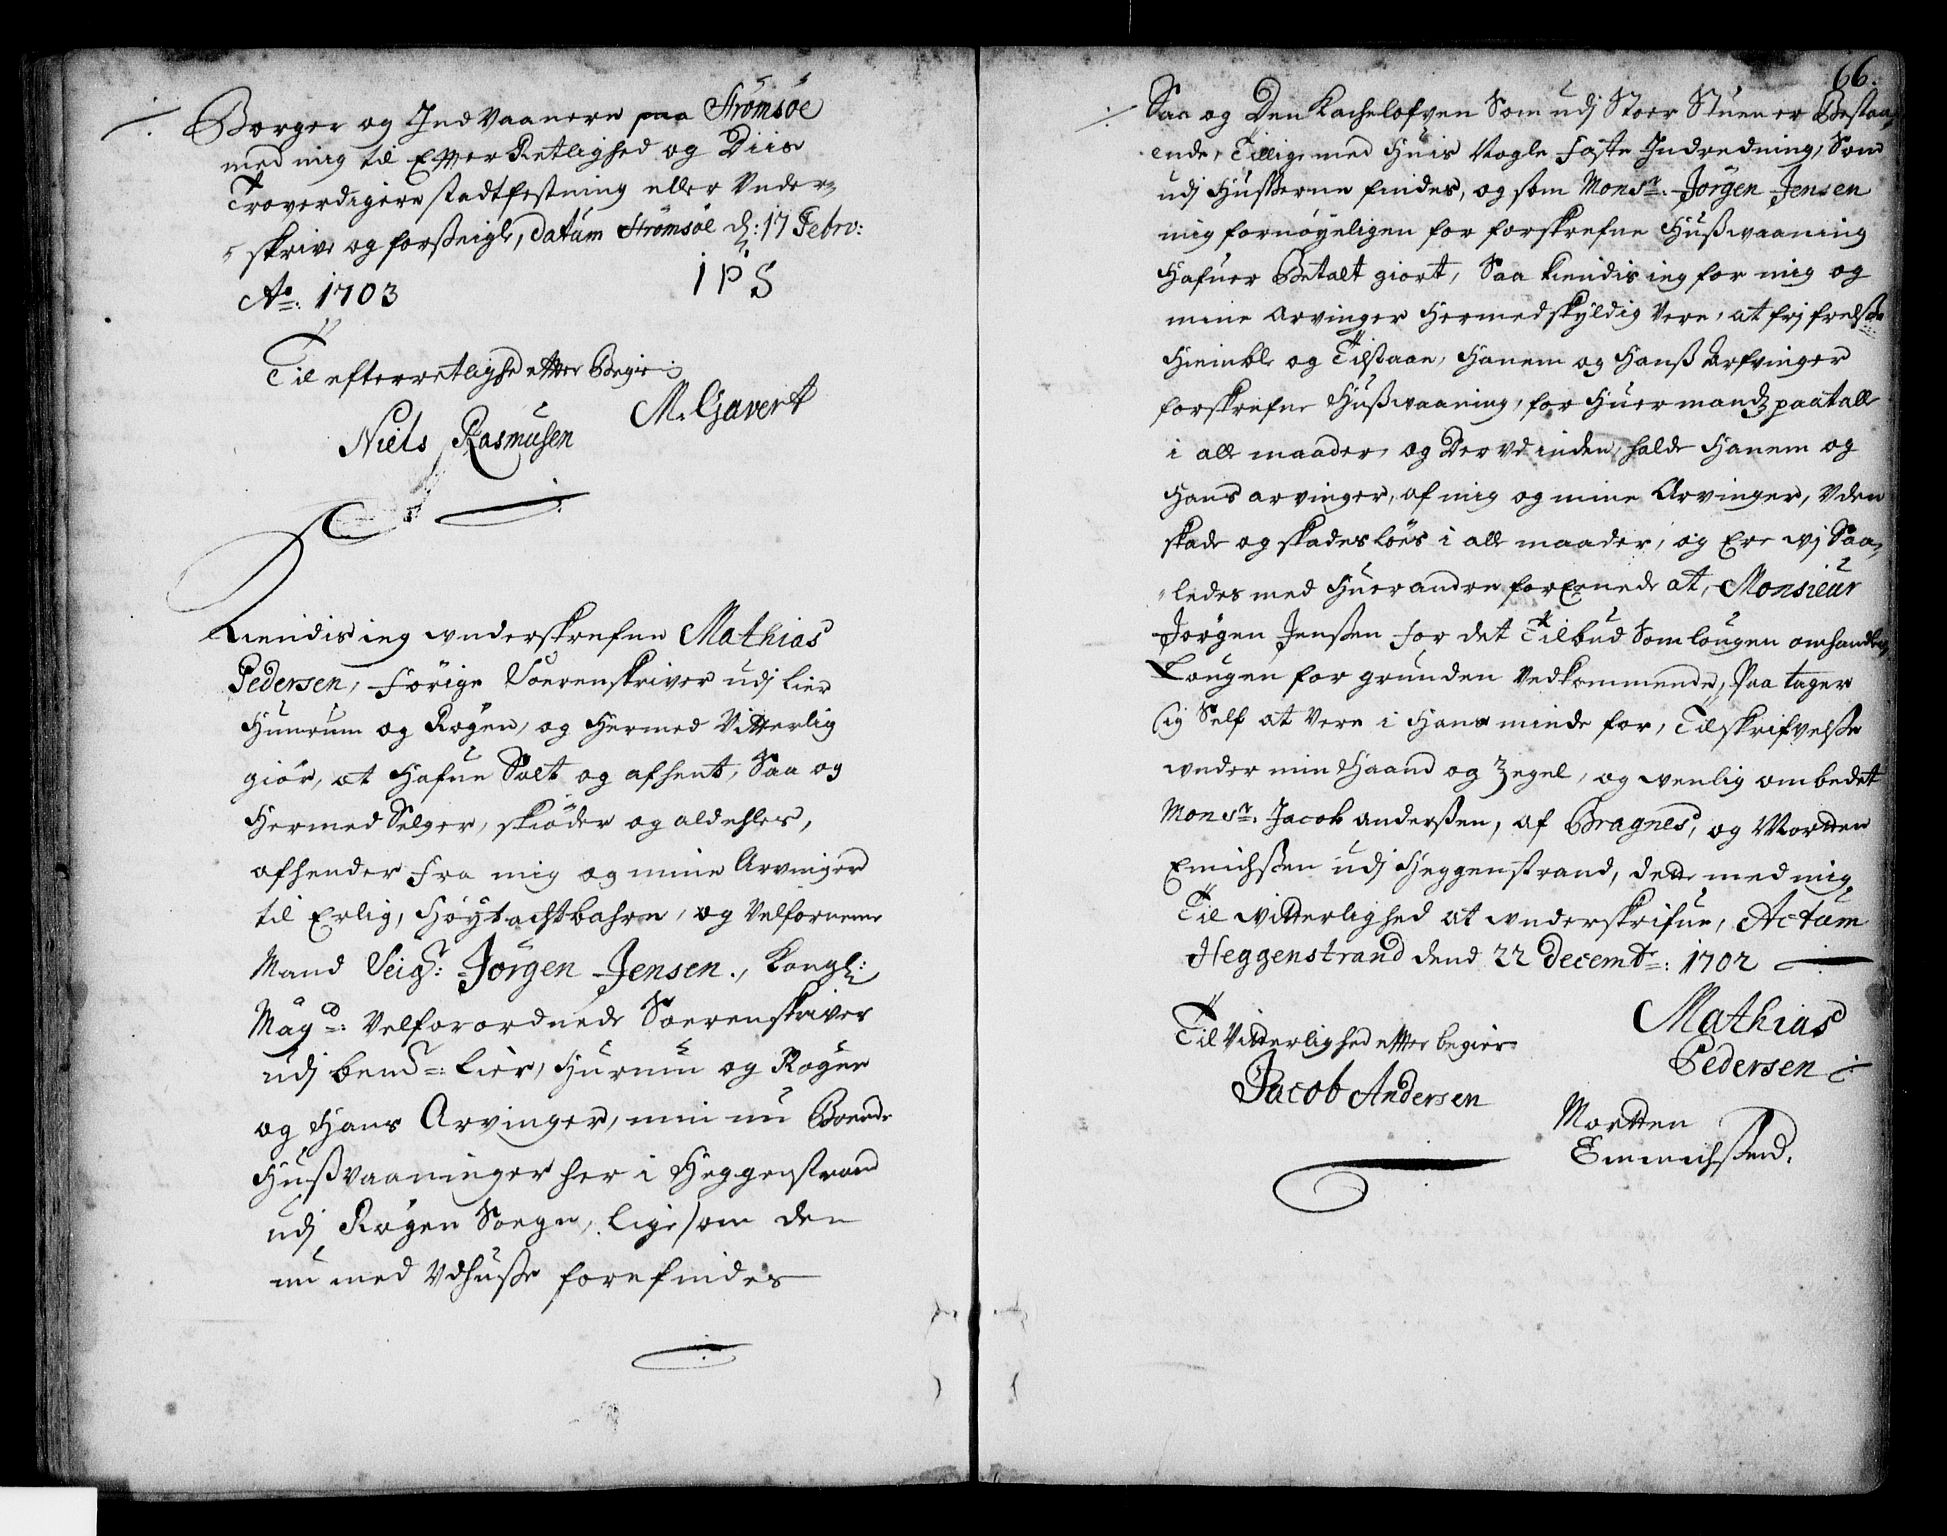 Borger og Indvaanere paa Strømsøe
med mig til Efter Retlighed og Diis
Troverdigere stadtfestning eller Under-
skrive og forseigle, datum Strømsøe d: 17 Febrv:
Ao: 1703 I P S
Til efterretlighed etter Begier:
Niels Rasmusen M. Gavert
Kiendis ieg underskrefne Mathias
Pedersen, forige Soerenskriver udj Lier
Hurum og Røgen, og Hermed Vitterlig
giør, at Hafue Solt og afhent, Saa og
Hermed Selger, skiøder og aldehles,
afhender fra mig og mine Arvinger
til Erlig, Høyt achtbahre, og Velforneme
Mand Seigr: Jørgen Jensen, Kongl:
Mayd: Velforordnede Soerenskriver
udj bemte: Lier, Hurum og Røgen
og Hans Arvinger, min nu Boende
Hußvaaninger her i Heggenstrand
udj Røgen Soegn, lige som den
nu med Udhuße forefindes
66.
Saa og Den Kachelofven Som udj Stoer Stuen er Bestaa-
ende, Tillige med Huis Nogle faste Indredning, Som
udj Hußerne findes, og som Monsr. Jørgen Jensen
mig fornøyeligen for forskrefne Hußvaaning
Hafuer Betalt giort, Saa kiendis ieg for mig og
mine Arvinger Hermed skyldig Vere, at frj frelße
Hiemble og Tilstaae, Hanem og Hanß Arfvinger
forskrefne Hußvaaning, for Huer mandz paatalle
i alle maader, og Der ved inden, holde Hanem og
Hans arvinger, af mig og mine Arvinger, Uden
skade og skadesløes i alle maader, og Ere wj Saa-
ledes med Huer andre forEenede at, Monsieur
Jørgen Jenßen for det Tilbud Som lougen omhandler
Lougen for grunden Vedkommende, Paa tager
sig Self at Vere i Hans minde for, Tilskrifvelße
under min Haand og Zegel, og wenlig ombedet
Monsr. Jacob anderßen, af Bragnes, og Morten
Emichßen udj Heggenstrand, dette med mig
Til Vitterlighed at underskrifue, Actum
Heggenstrand dend 22 decembr: 1702
Til Vitterlighed etter begier Mathias
Pedersen
Jacob Andersen
Mortten
Emmichßend.